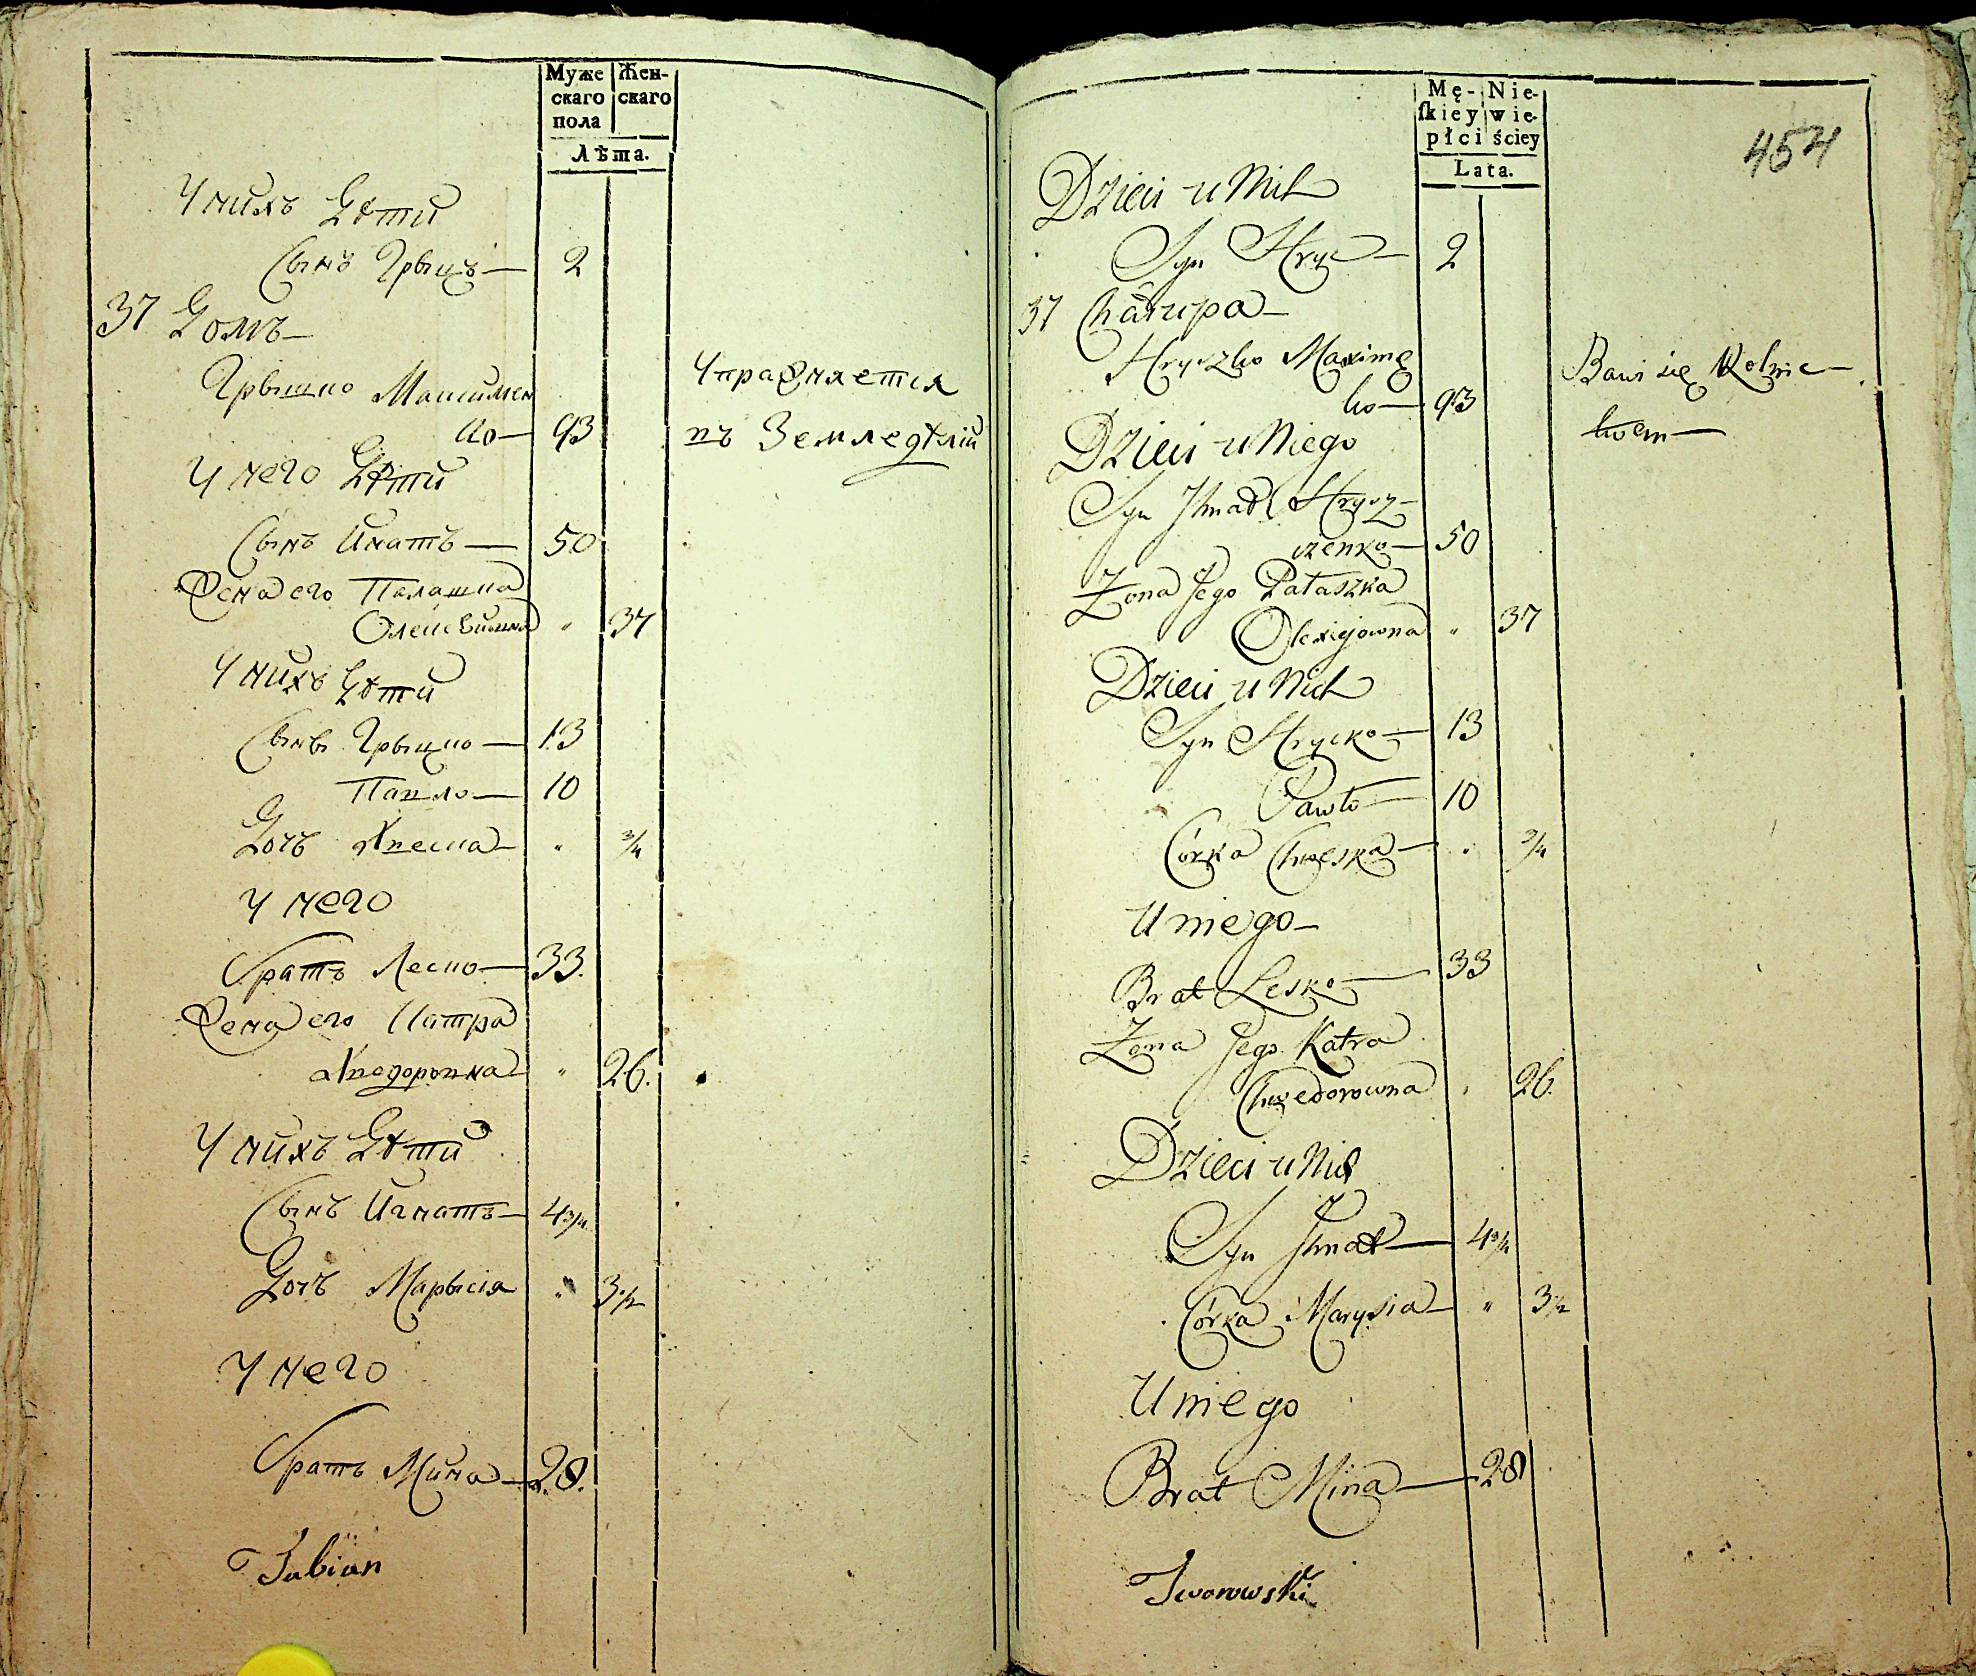 Муже
скаго
пола
Жен-
скаго
Лѣта.
У нихъ Дѣти
Сынъ Грыцъ — 2
37 Домъ —
Грышко Максимен
ко — 93
Упражняется
въ Земледѣліи
У него Дѣти
Сынъ Игнатъ — 50
Жена его Палашка
Олексѣивна " 37
У нихъ Дѣти
Сынъ Грыцко — 13
Павло — 10
Дочь Хвеска — " 3/4
У него
Братъ Леско — 33.
Жена его Катра
Хведоровна " 26.
У нихъ Дѣти
Сынъ Игнатъ — 4 3/4
Дочь Марысія " 3 1/2
У него
Братъ Мина — 28.
Fabian
Mę-
ſkiey
płci
Nie-
wie-
ściey
Lata.
454
Dzieci u Nich
Syn Hryc — 2
37 Chałupa —
Hryszko Maximę
ko — 93
Bawi się Rolnic —
twem —
Dzieci u Niego
Syn Ihnat Hrysz-
czenko — 50
Żona Jego Pałaszka
Olexiejowna " 37
Dzieci u Nich
Syn Hrycko — 13
Pawło — 10
Córka Chweska — " 3/4
U niego —
Brat Lesko — 33
Żona Jego Katra
Chwedorowna " 26.
Dzieci u Nich
Syn Ihnat — 4 3/4
Córka Marysia — " 3 1/2
U niego
Brat Mina — 28
Jworowski